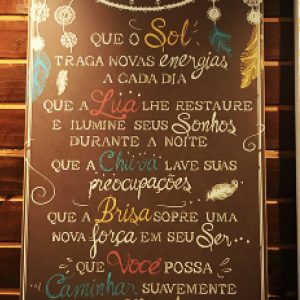 QUE O Sol
TRAGA NOVAS energias
A CADA DIA
QUE A Lua LHE RESTAURE
E ILUMINE SEUS Sonhos
DURANTE A NOITE
QUE A Chuva LAVE SUAS
preocupações
QUE A Brisa SOPRE UMA
NOVA força EM SEU Ser...
QUE Você POSSA
Caminhar SUAVEMENTE